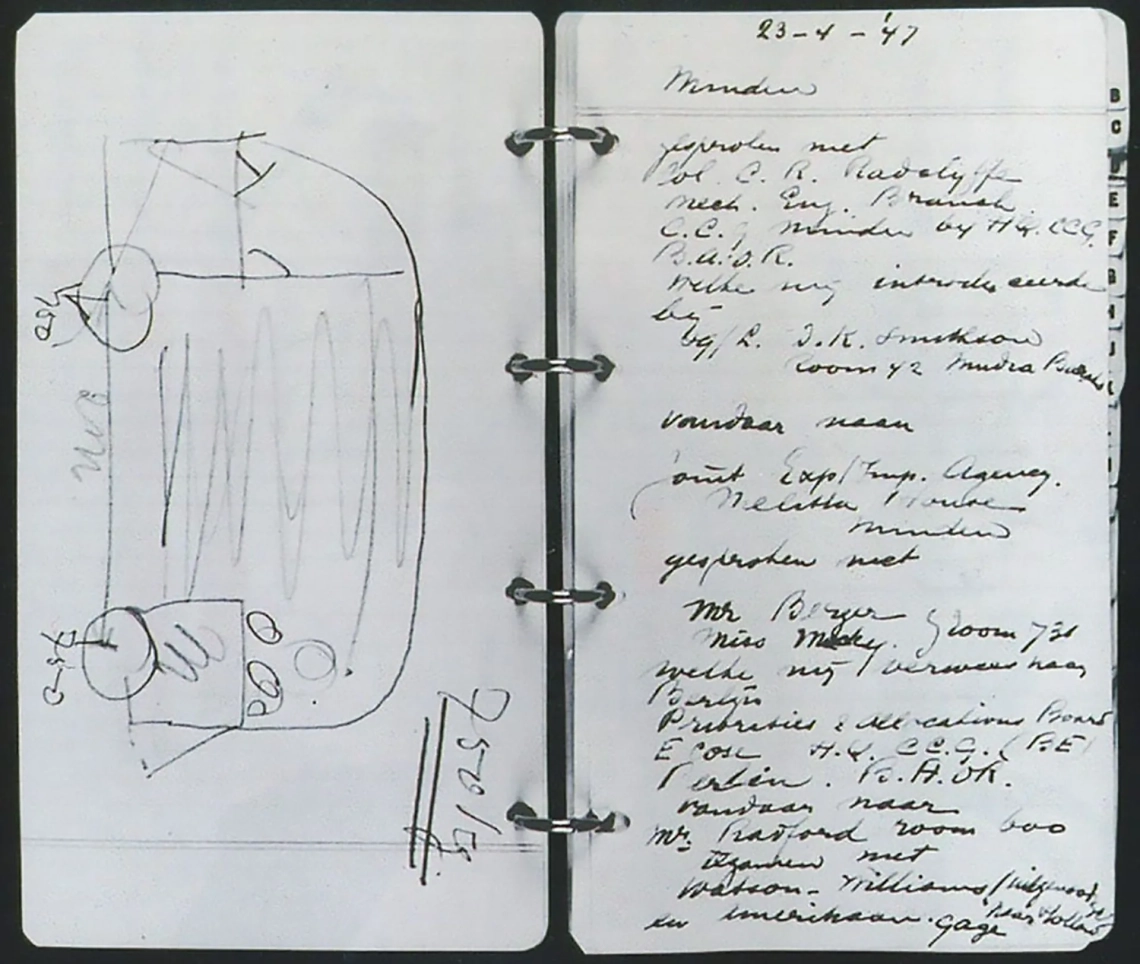 750
750
7500 kg
23-4-'47
Minden
gesproken met
Col. C. R. Radclyffe
Mech. Eng. Branch
C.C.G. Minden by H.Q. CCG.
B.A.O.R.
Welke mij introduceerde
bij
J.K. Smithson
Room 42
vandaar naar
Joint Exp/Imp. Agency.
Melitta House
Minden
gesproken met
Mr Berger
Miss Room
welke mij verwees naar
Berlijn
Priorities & Allocations Board
H.Q. C.C.G. (B.E)
Berlin. B.A.OR.
vandaar naar
Mr. Radford room 600
tezamen met
Watson-Williams
en Amerikaan. Gage
B
C
D
E
F
G
H
I
J